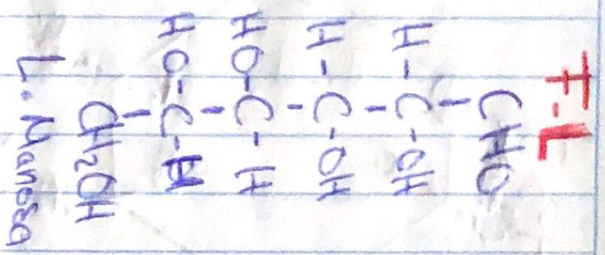 I-L
CHO
H-C-OH
H-C-OH
HO-C-H
HO-C-H
CH₂OH
L. Manosa